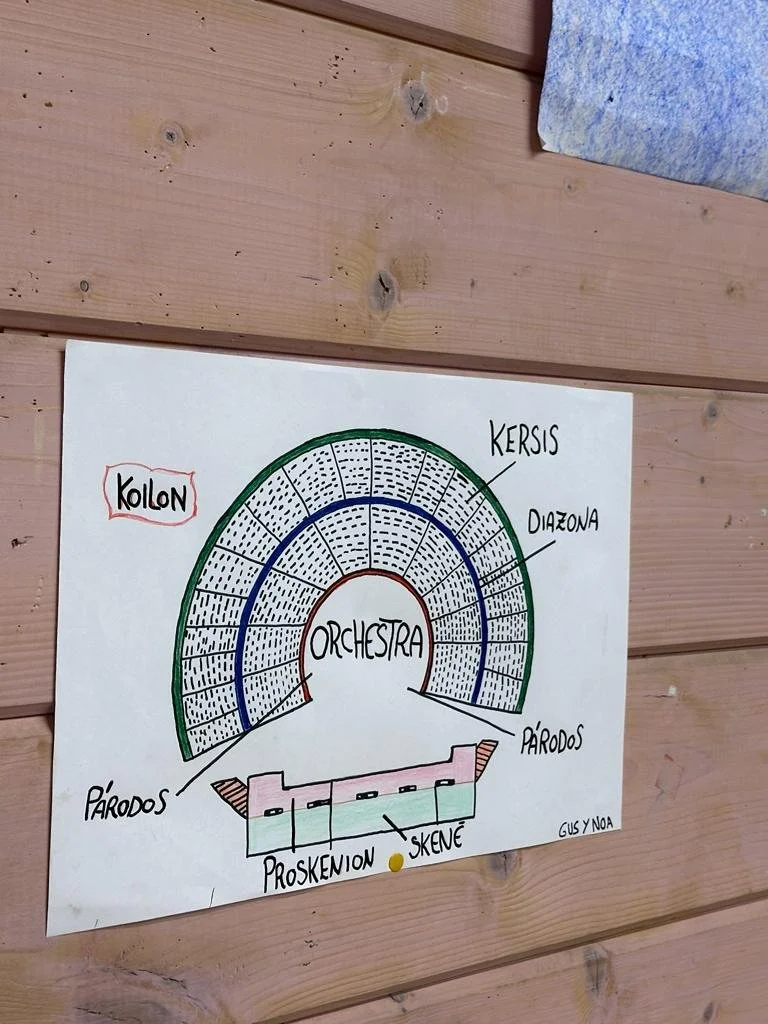 KERSIS
KOILON
DIAZONA
ORCHESTRA
PÁRODOS
PÁRODOS
GUS Y NOA
SKENÉ
PROSKENION